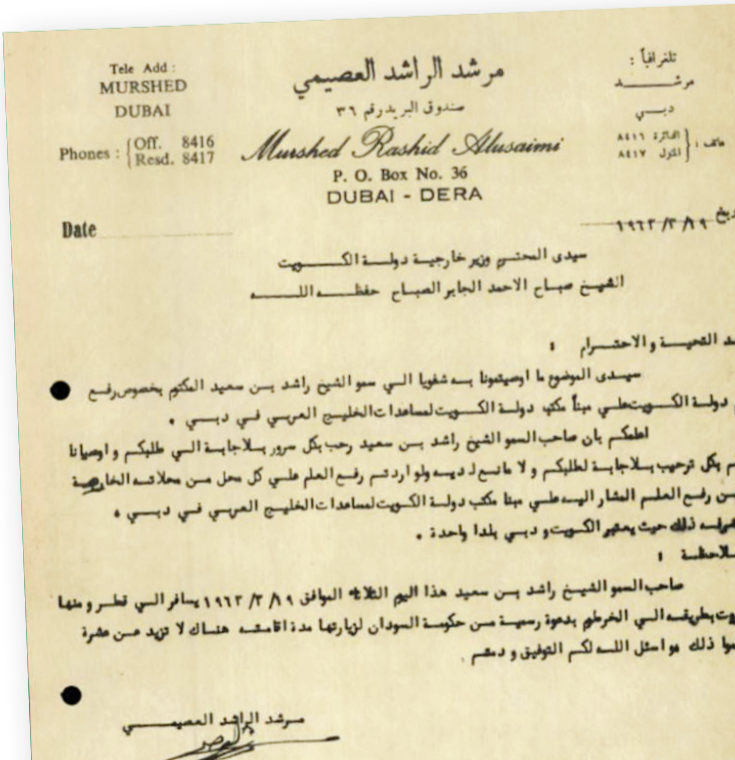 Tele Add :
MURSHED
DUBAI
Phones : Off. 8416
Resd. 8417
مرشد الراشد العصيمي
صندوق البريد رقم ٣٦
Murshed Rashid Alusaimi
P. O. Box No. 36
DUBAI - DERA
تلغرافياً :
مرشــــد
دبــي
٨٤١٦
٨٤١٧
Date
١٩٦٣/٣/١٩
سيدى المحترم وزير خارجية دولــة الكــــويت
الشيخ صباح الاحمد الجابر الصباح حفظــــه اللــــه
التحيــــة و الاحتــــرام :
سيــدى الموضوع ما اوصيتمونا بــه شفويا الــي سمو الشيخ راشد بــن سعيد المكتوم بخصوص رفــع
دولــة الكــــويت علــي مبنأ مكتب دولــة الكــويت لمساعدات الخليــج العربــي فــي دبــي .
اعلمكم بان صاحب السمو الشيخ راشد بــن سعيد رحب بكل سرور بــلاجابــة الــي طلبكم و اوصيانا
بكل ترحيب بــلاجابــة لطلبكم و لا مانــع لديــه ولو اردتــم رفــع العلم علــي كل محل مــن محلاتــه
رفــع العلــم المشار اليــه علــي مبنا مكتب دولــة الكــويت لمساعدات الخليــج العربــي فــي دبــي .
ذلك حيث يعتبر الكويت و دبــي بلدا واحدة .
صاحب السمو الشيــخ راشد بــن سعيد هذا اليوم الثلاثاء الموافق ١٩/ ٣/ ١٩٦٣ يسافر الــي قطــر و منها
بطريقــه الــي الخرطوم بدعوة رسميــة مــن حكومــة السودان لزيارتها مدة اقامتــه هنــاك لا تزيد عــن عشرة
ذلك و اسئل اللــه لكم التوفيق و دمتــم
مــرشد الراشد العصيمــــي